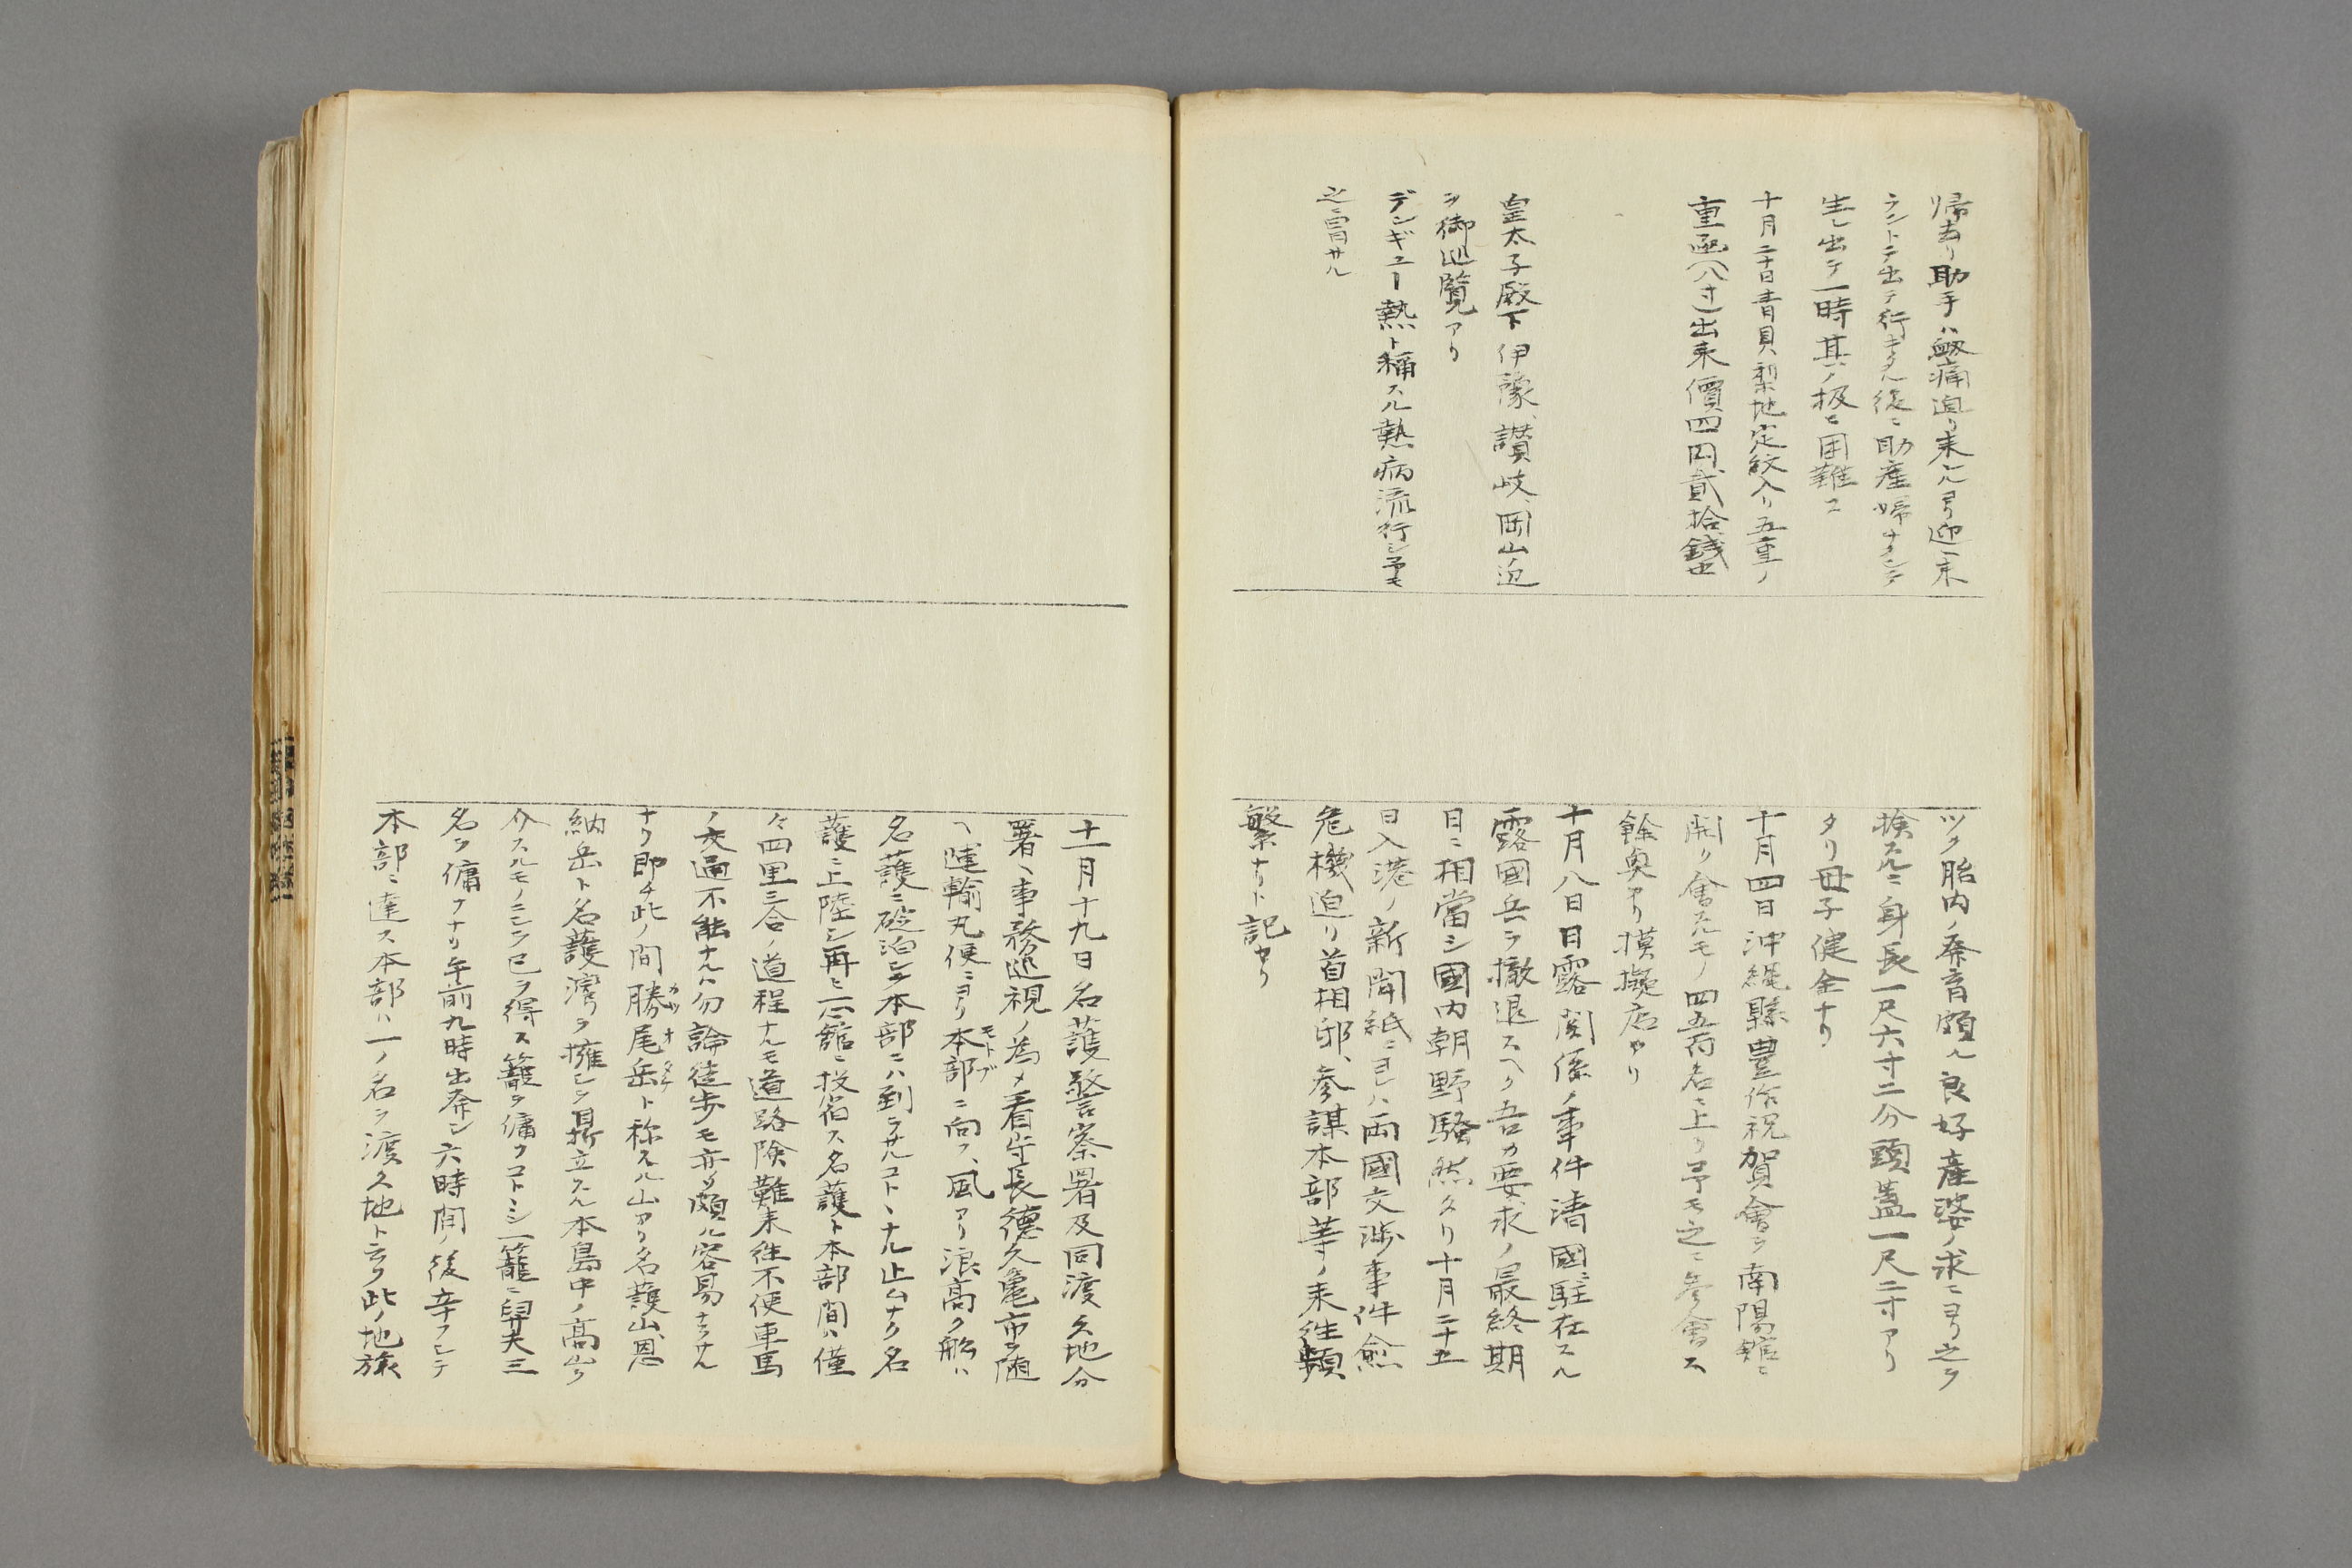 帰去リ助手ハ劔痛迫リ来ルヨリ迎ニ来
ラントテ出テ行キタル後ニ助産婦ナクシテ
生レ出テ一時其ノ扱ヒ困難ス
十月二十日青貝梨地定紋入リ五重ノ
重函(八寸)出来價四円貳拾銭也
皇太子殿下伊豫、讃岐、岡山迠
ヲ御巡覧アリ
デンギュー熱ト稱スル熱病流行シ予モ
之ニ冒サル
ツク胎内ノ發育頗ル良好産婆ノ求ニヨリ之ヲ
検スルニ身長一尺六寸二分頭蓋一尺二寸アリ
タリ母子健全ナリ
十月四日沖縄縣豊作祝賀會ヲ南陽館ニ
開ク會スルモノ四五百名ニ上リ予モ之ニ参會ス
餘興アリ摸擬店アリ
十月八日日露関係ノ事件清國ニ駐在スル
露國兵ヲ撤退スヘク吾カ要求ノ最終期
日ニ相當シ國内朝野騒然タリ十月二十五
日入港ノ新聞紙ニヨレハ両國交渉事件愈
危機迫リ首相邸、参謀本部等ノ来往頻
繁ナリト記セリ
十一月十九日名護警察署及同渡久地分
署ヘ事務巡視ノ為メ看守長徳久亀市ヲ随
ヘ運輸丸便ニヨリ本部ニ向フ、風アリ浪高ク船ハ
モトブ
名護ニ碇泊シテ本部ニハ到ラサルコトヽナル止ムナク名
護ニ上陸シ再ヒ一心館ニ投宿ス名護ト本部間ハ僅
々四里三合ノ道程ナルモ道路険難来往不便車馬
ノ交通不能ナルハ勿論徒歩モ亦タ頗ル容易ナラサル
ナリ即チ此ノ間勝尾岳ト称スル山アリ名護山、恩
カツ オ タケ
納岳ト名護湾ヲ擁シテ鼎立スル本島中ノ高山ヲ
介スルモノニシテ已ヲ得ス籠ヲ傭フコトヽシ一籠ニ舁夫三
名ヲ傭フナリ午前九時出発シ六時間ノ後辛フシテ
本部ニ達ス本部ハ一ノ名ヲ渡久地ト云フ此ノ地旅